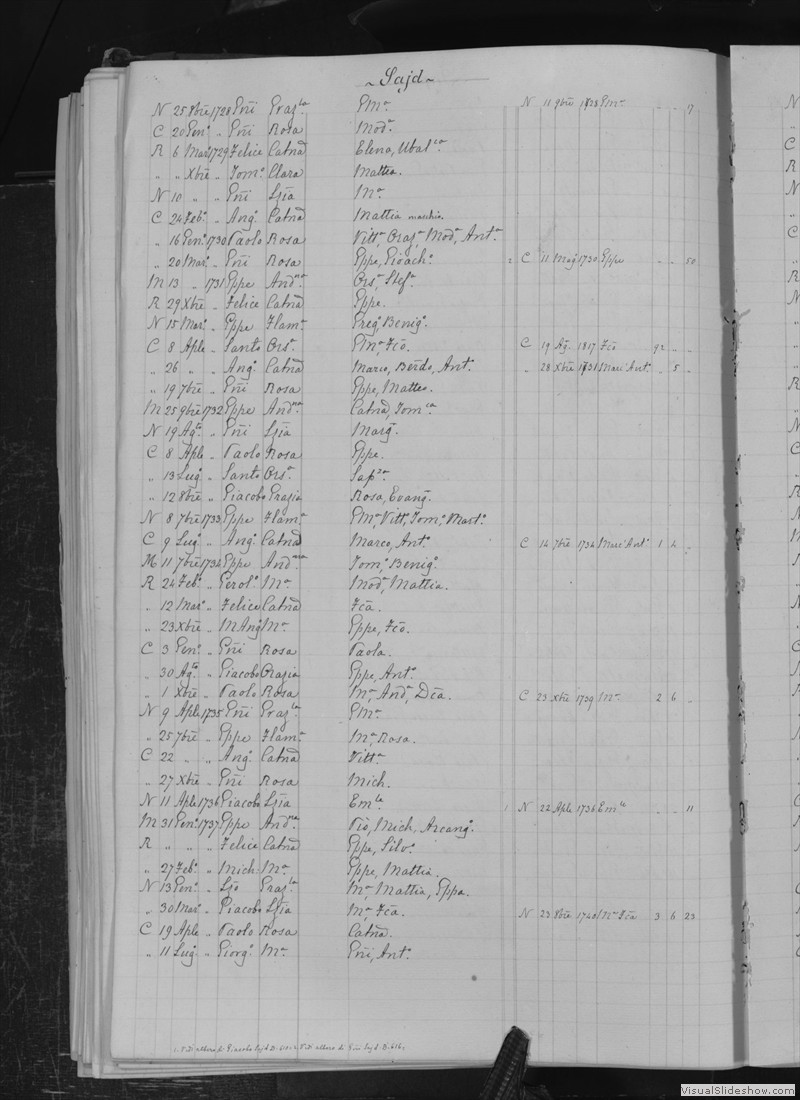 ~ Sajd ~
N 25 Xbre 1728 Gñi Graz.la Gma N 11 9bre 1728 Gma " " 7
C 20 Gen.o " Gñi Rosa Mod.a
R 6 Mar.o 1729 Felice Catnã Elena, Ubal.ca
" " Xbre " Tom.o Clara Mattea.
N 10 " " Gñi Lẽia M.a
C 24 Feb.o " Ang.o Catnã Mattia maschio.
" 16 Gen.o 1730 Paolo Rosa Vitt.a, Oraz.a, Mod.a, Ant.a
" 20 Mar.o " Gñi Rosa Gppe, Gioach.o 2 C 11 Mag 1730 Gppe " " 50
M 13 " 1731 Gppe And.na Ors.a, Stef.a
R 29 Xbre " Felice Catnã Gppe.
N 15 Mar.o " Gppe Flam.a Greg.o, Benig.o
C 8 Aple " Santo Ors.a Gma, Fcõ. C 19 Ag. 1817 Fcõ 92 " "
" 26 " " Ang.o Catnã Marco, Berdo, Ant.o " 28 Xbre 1731 Marc'Ant.o " 5 "
" 19 7bre " Gñi Rosa Gppe, Matteo.
M 25 9bre 1732 Gppe And.na Catnã, Tom.ca
N 19 Ag.to " Gñi Lẽia Marg.a
C 8 Aple " Paolo Rosa Gppe.
" 13 Lug.o " Santo Ors.a Sap.za
" 12 8bre " Giacobo Grazia Rosa, Evang.
N 8 7bre 1733 Gppe Flam.a Gma, Vitt.a, Tom.o, Mart.o
C 9 Lug.o " Ang.o Catnã Marco, Ant.o C 14 7bre 1734 Marc'Ant.o 1 2 "
M 11 7bre 1734 Gppe And.na Tom.o, Benig.o
R 24 Feb.o " Gerol.o M.a Mod.a, Mattia.
" 12 Mar.o " Felice Catnã Fcã.
" 23 Xbre " M Ang.o M.a Gppe, Fcõ.
C 3 Gen.o " Gñi Rosa Paola.
" 30 Ag.to " Giacobo Grazia Gppe, Ant.o
" 1 Xbre " Paolo Rosa M.a, And.a, Dcã. C 23 Xbre 1739 M.a 2 6 "
N 9 Aple 1735 Gñi Graz.la Gma
" 25 7bre " Gppe Flam.a M.a, Rosa.
C 22 " " Ang.o Catnã Vitt.a
" 27 Xbre " Gñi Rosa Mich.
N 11 Aple 1736 Giacobo Lẽia Em.la 1 N 22 Aple 1736 Em.la " " 11
M 31 Gen.o 1737 Gppe And.na Pio, Mich, Arcang.o
R " " " Felice Catnã Gppe, Silv.o
" 27 Feb.o " Mich. M.a Gppe, Mattia.
N 13 Gen.o " Lẽo Graz.la M.a Mattia, Gppa.
" 30 Mar.o " Giacobo Lẽia M.a Fcã. N 23 8bre 1740 M.a Fcã 3 6 23
C 19 Aple " Paolo Rosa Catnã.
" 11 Lug.o " Giorg.o M.a Gñi, Ant.o
1. Vedi albero di Giacobo Sajd B. 2. Vedi albero di Gñi Sajd. B. 616.
VisualSlideshow.com